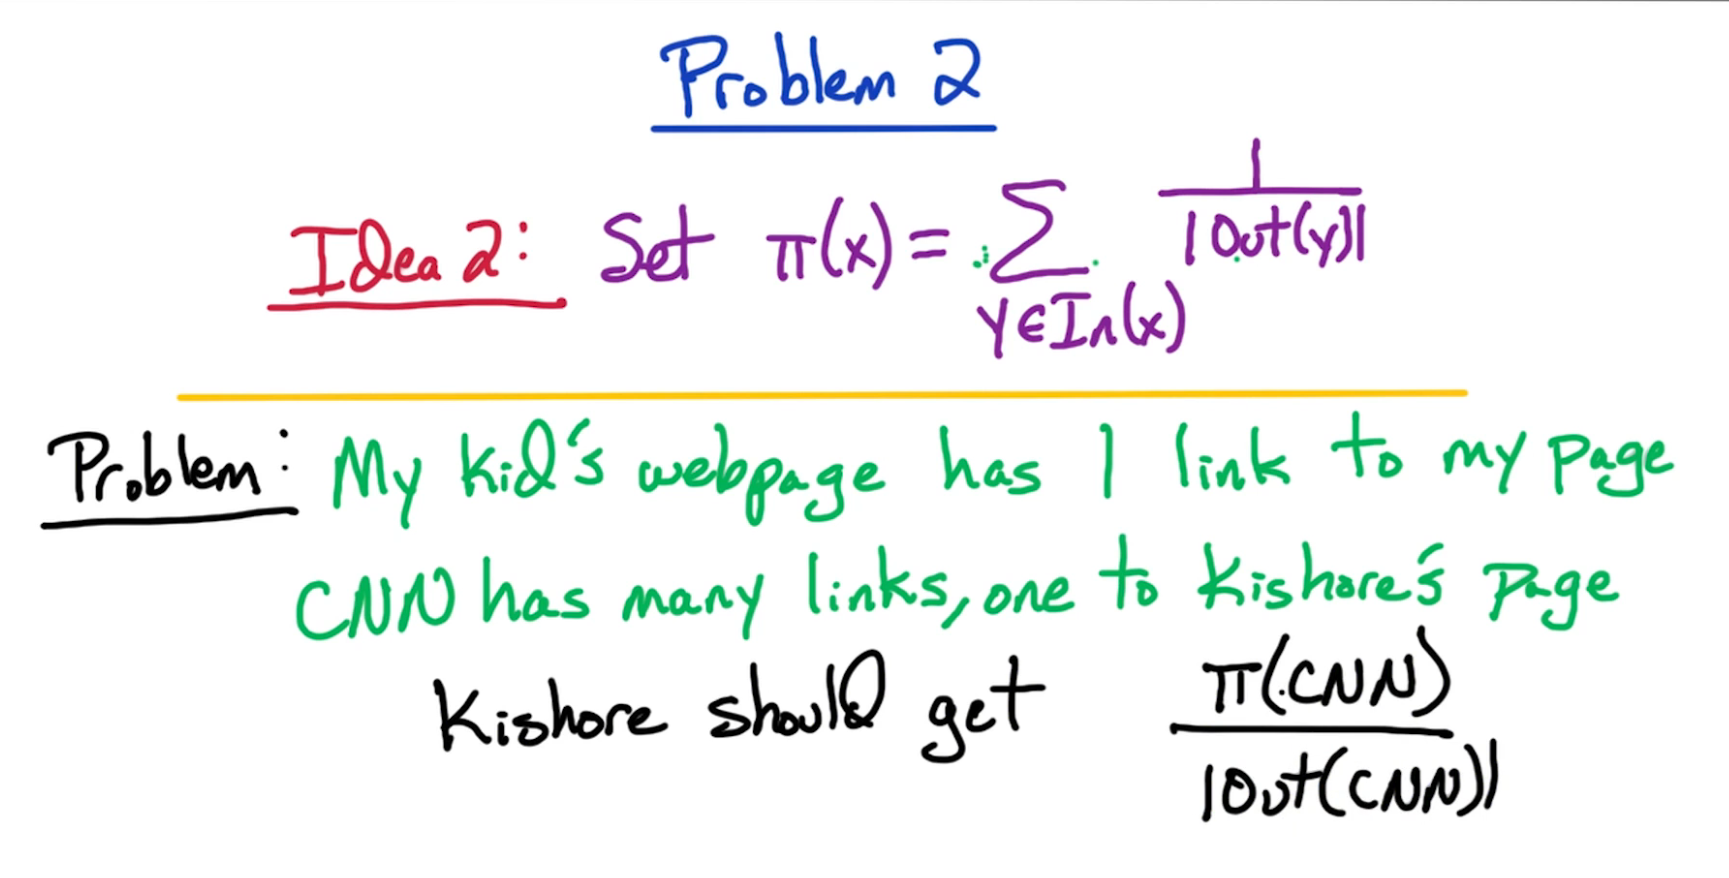 Problem 2
Idea 2: Set π(x) = ∑_{y∈In(x)} 1/|Out(y)|
Problem: My kid's webpage has 1 link to my page
CNN has many links, one to Kishore's page
Kishore should get π(CNN)/|Out(CNN)|